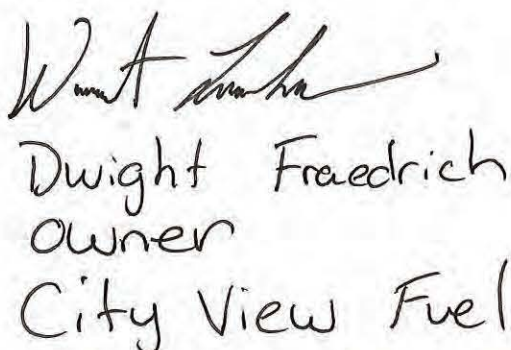 Dwight Fraedrich
owner
City View Fuel